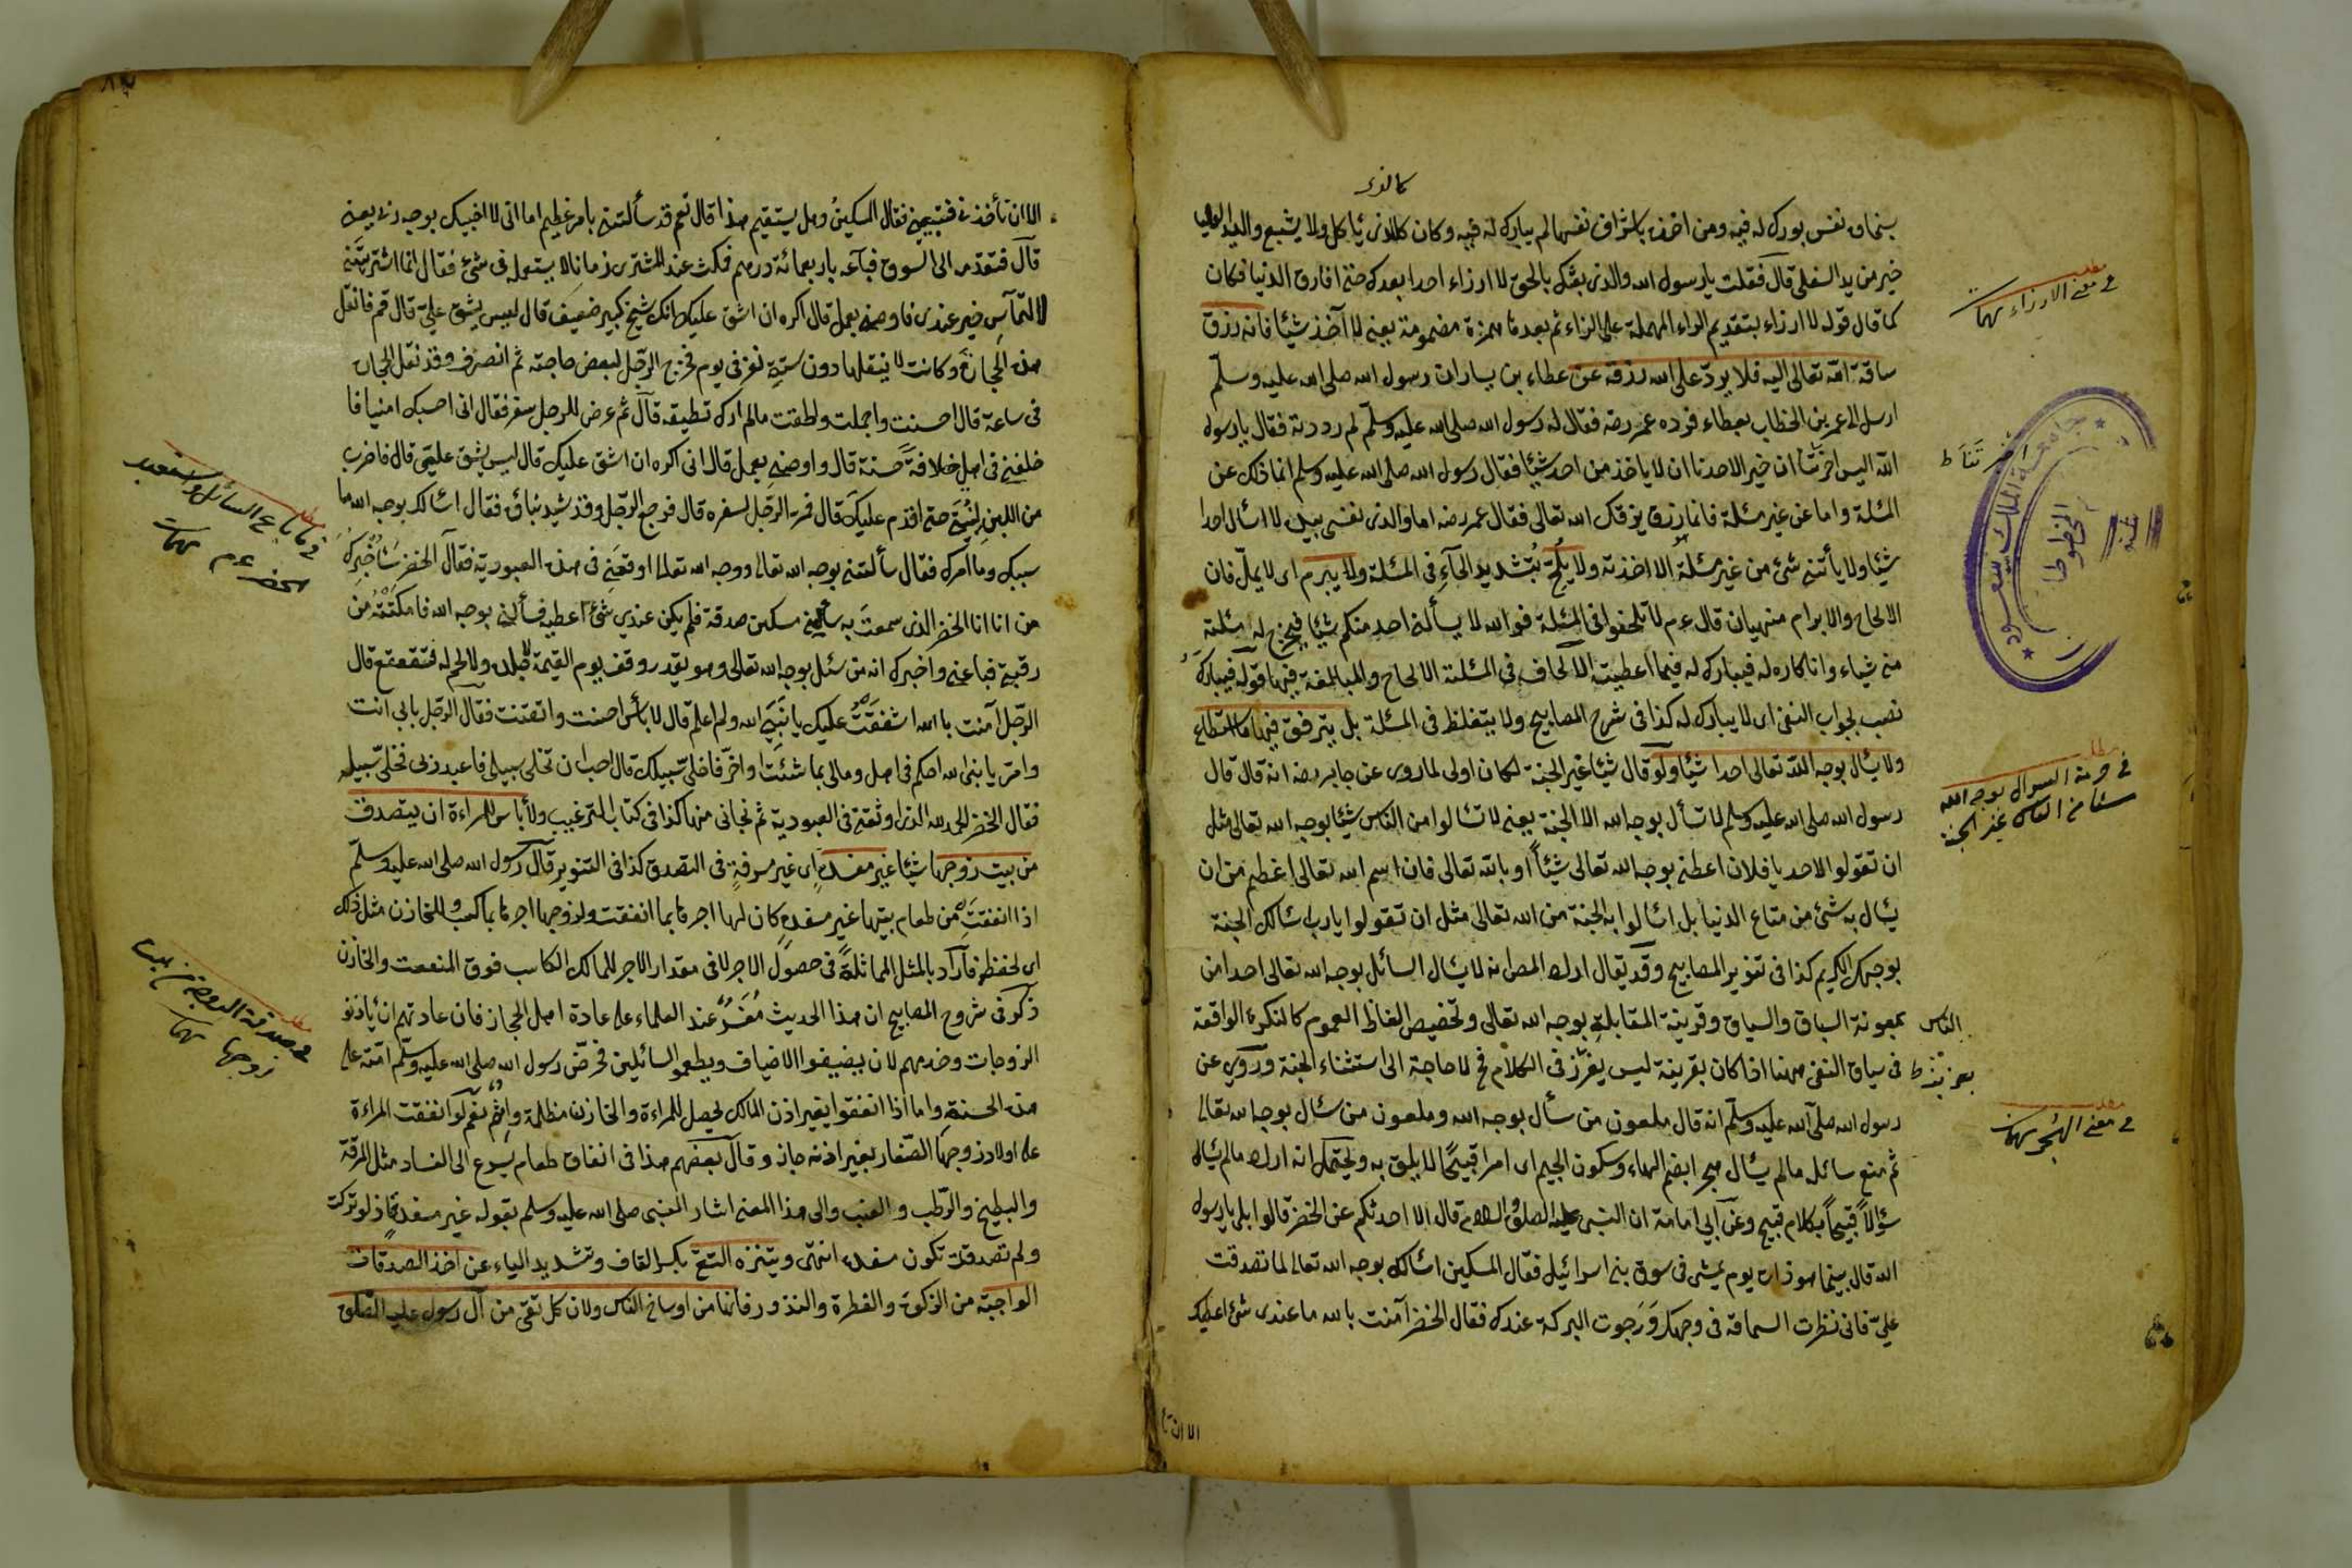 كالذي
بسخاوة نفس بورك له فيه ومن اخذه باشراف نفس لم يبارك له فيه وكان كالذي يأكل ولا يشبع واليد العليا
خير من يد السفلى قال فقلت يا رسول الله والذي بعثك بالحق لا ارزاء احدا بعدك حتى افارق الدنيا فكان
كما قال قوله لا ارزاء بتقديم الراء المهملة على الزاء ثم بعدها همزة مضمومة يعني لا آخذ شيئا فانه رزق
ساقه الله تعالى اليه فلا يرد على الله رزقه عن عطاء بن يسار ان رسول الله صلى الله عليه وسلم
ارسل الى عمر بن الخطاب بعطاء فرده عمر رضه فقال له رسول الله صلى الله عليه وسلم لم رددته فقال يا رسول
الله اليس اخبرتنا ان خير الاحدنا ان لا ياخذ من احد شيئا فقال رسول الله صلى الله عليه وسلم انما ذلك عن
المسئلة واما عن غير مسئلة فانما رزق يرزقك الله تعالى فقال عمر رضه اما والذي نفسي بيده لا اسأل احدا
شيئا ولا يأتني شئ من غير مسئلة الا اخذته ولا يلح بتشديد الحاء في المسئلة ولا يبرم اى لا يمل فان
الالحاح والابرام منهيان قال عم لا تلحفوا في المسئلة فو الله لا يسألني احد منكم شيئا فيخرج له مسئلته
مني شياء وانا كاره له فيبارك له فيما اعطيته الالحاف في المسئلة الالحاح والمبالغة فيها قوله فيبارك
نصب لجواب النفى اى لا يبارك له كذا في شرح المصابيح ولا يتغلظ في المسئلة بل يترفق فيها ما استطاع
ولا يسأل بوجه الله تعالى احدا شيئا ولو قال شيئا غير الجنة لكان اولى لما روى عن جابر رضه انه قال قال
رسول الله صلى الله عليه وسلم لا تسأل بوجه الله الا الجنة يعني لا تسألوا من الناس شيئا بوجه الله تعالى مثل
ان تقولوا لاحد يا فلان اعطني بوجه الله تعالى شيئاً او بالله تعالى فان اسم الله تعالى اعظم من ان
يسأل به شئ من متاع الدنيا بل اسألوا به الجنة من الله تعالى مثل ان تقولوا يا رب اسألك الجنة
بوجهك الكريم كذا في تنوير المصابيح وقد يقال اراد المص انه لا يسأل السائل بوجه الله تعالى احدا من
الناس بمعونة السباق والسياق وقرينة المقابلة بوجه الله تعالى وتخصيص الفاظ العموم كالنكرة الواقعة
في سياق النفى ههنا اذا كان بقرينة ليس يعز في الكلام فح لا حاجة الى استثناء الجنة وروى عن
رسول الله صلى الله عليه وسلم انه قال ملعون من سأل بوجه الله وملعون من سئل بوجه الله تعالى
ثم منع سائله ما لم يسأل هجرا بضم الهاء وسكون الجيم اى امرا قبيحا لا يليق به ويحتمل انه اراد ما لم يسأل
سؤالاً قبيحاً بكلام قبيح وعن ابي امامة ان النبي عليه الصلوة والسلام قال الا احدثكم عن الخضر قالوا بلى يا رسول
الله قال بينما هو ذات يوم يمشى في سوق بني اسرائيل فقال المسكين اسألك بوجه الله تعالى لما تصدقت
علي فاني نظرت السماقة في وجهك ورجوت البركة عندك فقال الخضر آمنت بالله ما عندى شئ اعطيك
الا ان تأ
مطلب
في معنى الارزاء
مطلب
في حرمة السؤال بوجه الله
شيئا من الناس غير الجنة
مطلب
في معنى الهجر
جامعة الملك سعود
المخطوطات
الا ان تأخذني فتبيعني فقال المسكين وهل يستقيم هذا قال نعم قد سألتني بامر عظيم اما اني لا اخيبك بوجه ربي بعني
قال فتقدم الى السوق فباعه باربعمائة درهم فمكث عند المشترى زمانا لا يستعمله في شئ فقال انما اشتريتني
لالتماس خير عندى فاوصني بعمل قال اكره ان اشق عليك انك شيخ كبير ضعيف قال ليس يشق علي قال قم فانقل
هذه الحجارة وكانت لا ينقلها دون ستة نفر في يوم فخرج الرجل لبعض حاجته ثم انصرف وقد نقل الحجارة
في ساعة قال احسنت واجملت ولطقت ما لم ارك تطيقه قال ثم عرض للرجل سفر فقال اني احسبك امينا فا
خلفني في اهلى خلافة حسنة قال واوصني بعمل قال اني اكره ان اشق عليك قال ليس يشق علي قال فاضرب
من اللبن لبيتي حتى اقدم عليك قال فمر الرجل لسفره قال فرجع الرجل وقد شيد بناؤه فقال اسألك بوجه الله ما
سببك وما امرك فقال سألتني بوجه الله تعالى ووجه الله تعالى اوقعني في هذه العبودية فقال الخضر سأخبرك
من انا انا الخضر الذى سمعت به سألني مسكين صدقة فلم يكن عندي شئ اعطيه فسألني بوجه الله فامكنته من
رقبتي فباعني واخبرك انه من سئل بوجه الله تعالى وهو يقدر وقف يوم القيمة جلده ولا لحم له فتقعقع قال
الرجل آمنت بالله اشققت عليك يا نبي الله ولم اعلم قال لا بأس احسنت واتقنت فقال الرجل بابي انت
وامي يا نبي الله احكم في اهلى ومالى بما شئت او اختر فاخلى سبيلك قال احب ان تخلى سبيلى فاعبد ربى فخلى سبيله
فقال الخضر الحمد لله الذى اوثقني في العبودية ثم نجانى منها كذا في كتاب الترغيب ولا بأس للمراءة ان يتصدق
من بيت زوجها شيئا غير مفسدة اى غير مسرفة في التصدق كذا في التنوير قال رسول الله صلى الله عليه وسلم
اذا انفقت من طعام بيتها غير مفسدة كان لها اجرها بما انفقت ولزوجها اجره بما كسب وللخازن مثل ذلك
اى لحفظه فاراد بالمثل المماثلة في حصول الاجر لا في مقدار الاجر للمالك الكاسب فوق المنفعت والخازن
ذكر في شروح المصابيح ان هذا الحديث مفسر عند العلماء على عادة اهل الحجاز فان عادتهم ان يأذنوا
الزوجات وخدمهم لان يضيفوا الاضياف ويطعموا السائلين فحرض رسول الله صلى الله عليه وسلم امته على
هذه الحسنة واما اذا انفقوا بغير اذن المالك يحصل للمراءة والخازن مظلمة واثم نعم لو انفقت المراءة
على اولاد زوجها الصغار بغير اذنه جاز وقال بعضهم هذا في انفاق طعام يسرع الى الفساد مثل المرقة
والبطيخ والرطب والعنب والى هذا المعنى اشار النبى صلى الله عليه وسلم بقوله غير مفسدة اذ لو تركت
ولم تصدقت تكون مفسدة انتهى ويتنزه التقي بكسر القاف وتشديد الياء عن اخذ الصدقات
الواجبة من الزكوة والفطرة والنذور فانها من اوساخ الناس ولان كل تقي من آل رسول عليه الصلوة
مطلب
في صدقة الزوجة من بيت
زوجها